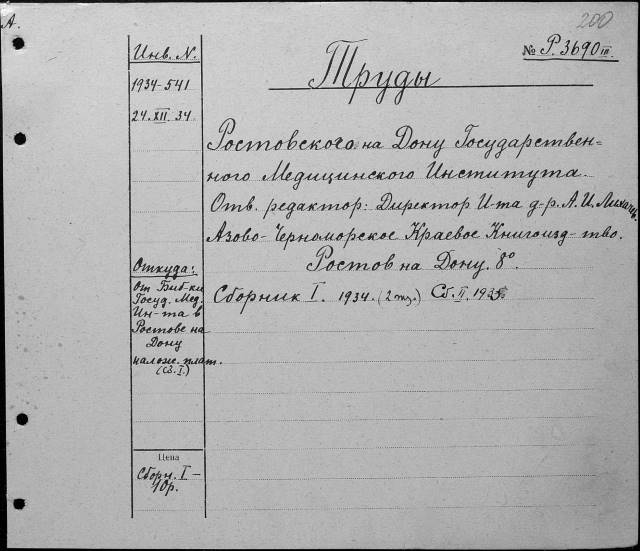 А.
200
Инв. N.
№ Р. 3690 III
Труды
1934-541
24. XII. 34
Ростовского на Дону Государствен=
ного Медицинского Института.
Отв. редактор: Директор И-та д-р. А. И.
Азово-Черноморское Краевое Книгоизд-тво.
Ростов на Дону. 8°.
Сборник I. 1934. (2 экз.) Сб. II. 1935.
Откуда:
От Биб-ки
Госуд. Мед.
Ин-та в
Ростове на
Дону
налож. плат.
(Сб. I.)
Цена
Сборн. I —
10р.